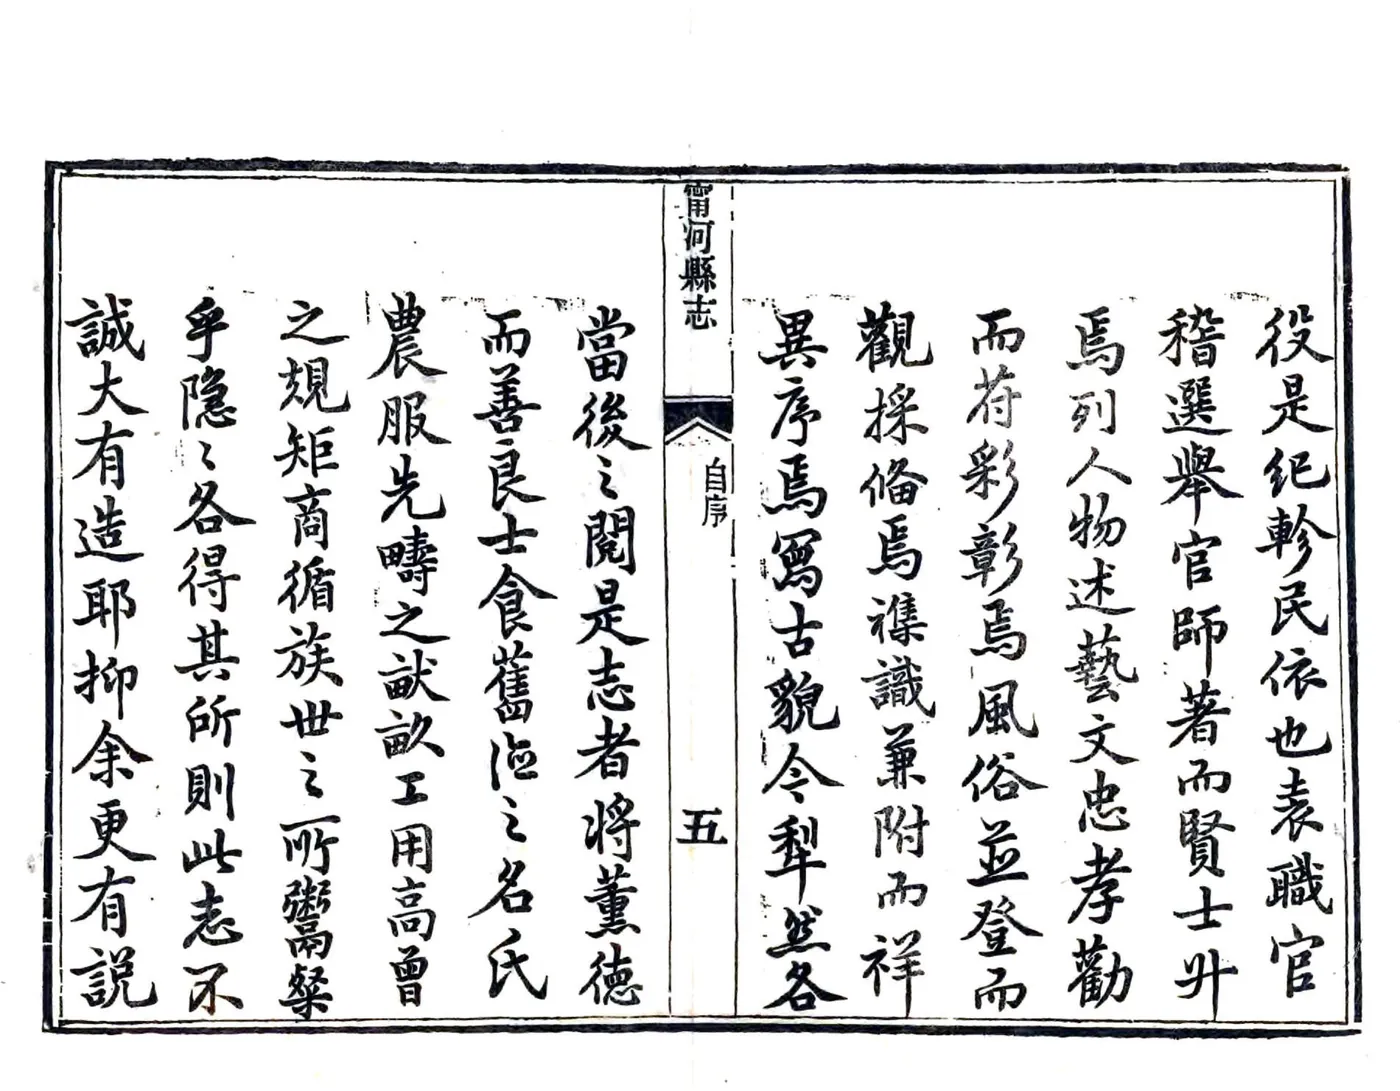 役是紀軫民依也表職官
稽選舉官師著而賢士升
焉列人物述藝文忠孝勸
而符彩彰焉風俗並登而
觀採俻焉襍識兼附而祥
異序焉寫古貌今犁然各
甯河縣志
自序
五
當後之閱是志者將薰德
而善良士食舊德之名氏
農服先疇之畎畝工用高曾
之規矩商循族世之所鬻粲
乎隐〻各得其所則此志不
誠大有造耶抑余更有説